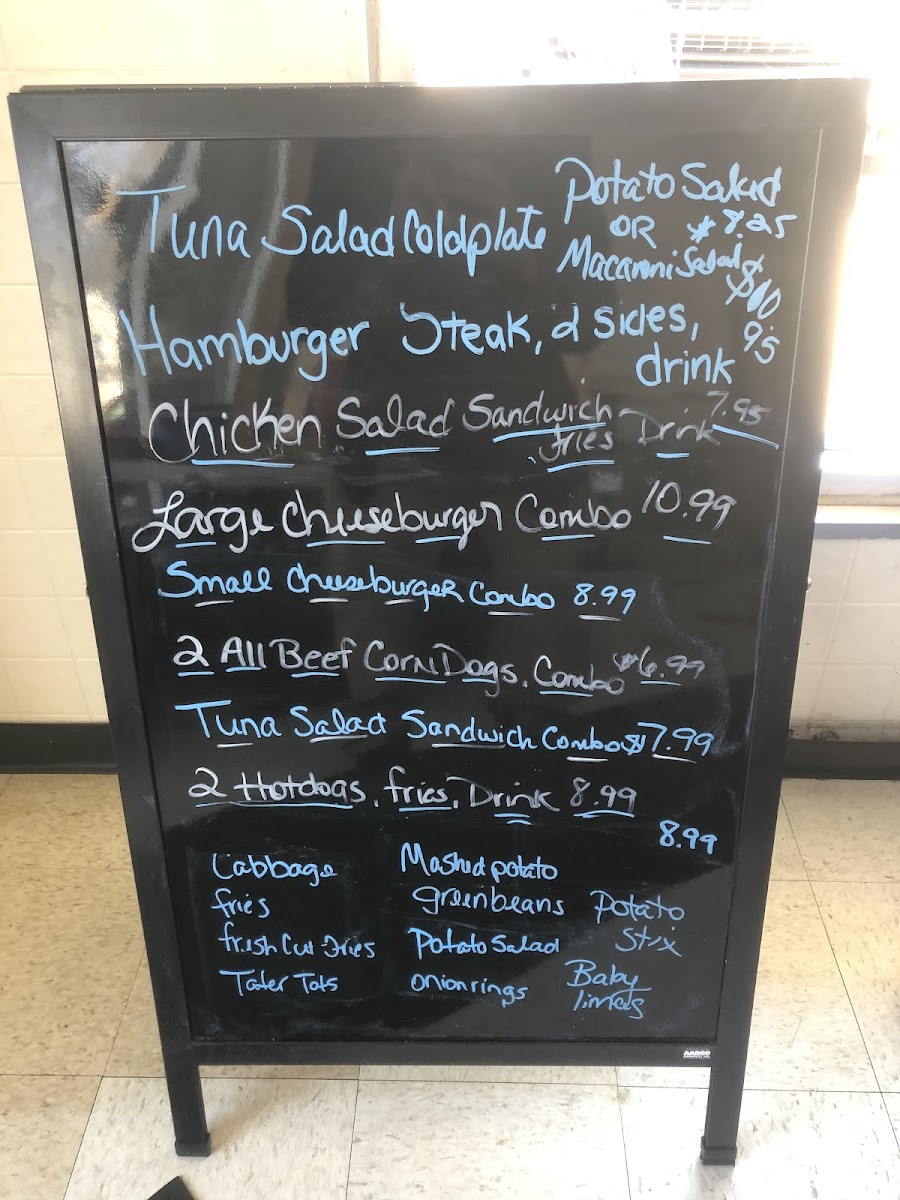 Tuna Salad Coldplate
Potato Salad
OR $8.25
Macaroni Salad
Hamburger Steak, 2 sides,
drink
Chicken Salad Sandwich 7.95
fries Drink
Large Cheeseburger Combo 10.99
Small Cheeseburger Combo 8.99
2 All Beef Corn Dogs, Combo $6.99
Tuna Salad Sandwich Combo $7.99
2 Hotdogs, fries, Drink 8.99
8.99
Cabbage
fries
fresh Cut Fries
Tater Tots
Mashed potato
greenbeans
Potato Salad
onion rings
Potato
Stix
Baby
limas
AARCO